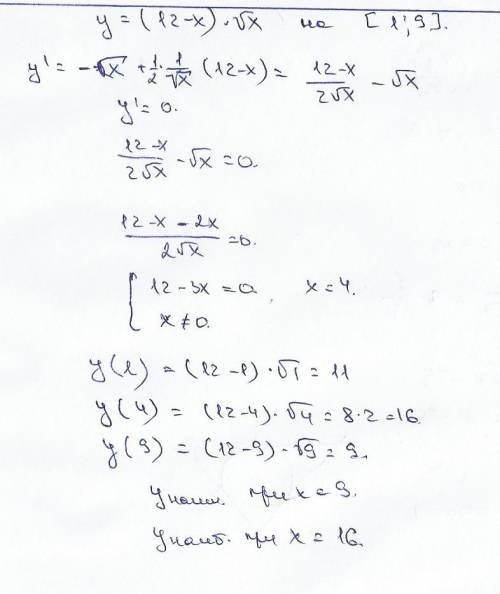 y = (12-x)·√x на [1; 9].
y' = -√x + 1/2 · 1/√x (12-x) = (12-x)/(2√x) - √x
y' = 0.
(12-x)/(2√x) - √x = 0.
(12-x-2x)/(2√x) = 0.
{ 12-3x = 0, x = 4.
x ≠ 0.
y(1) = (12-1)·√1 = 11
y(4) = (12-4)·√4 = 8·2 = 16
y(9) = (12-9)·√9 = 9.
y наим. при x = 9.
y наиб. при x = 16.